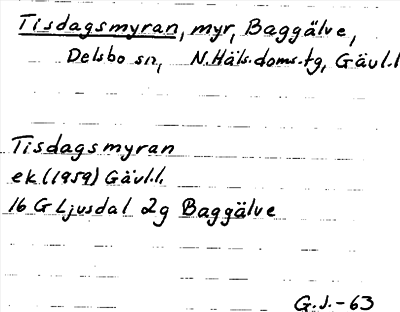 Tisdagsmyran, myr, Baggälve,
Delsbo sn, N. Häls. doms.-tg, Gävl.l
Tisdagsmyran
ek (1959) Gävl.l.
16 G Ljusdal 2g Baggälve
G.J.-63